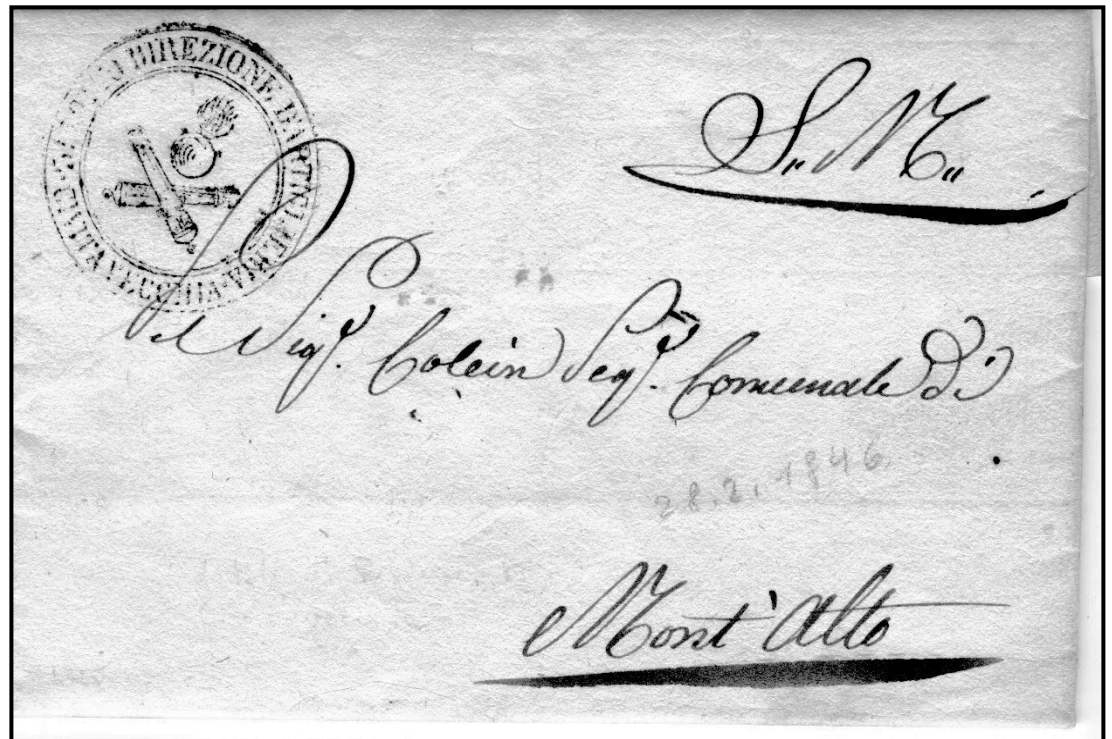 DIREZIONE D'ARTIGLIERIA
CIVITA VECCHIA
S,, M,,
Sigr. Segr. Comunale Di
28.2.1846
Mont'Alto